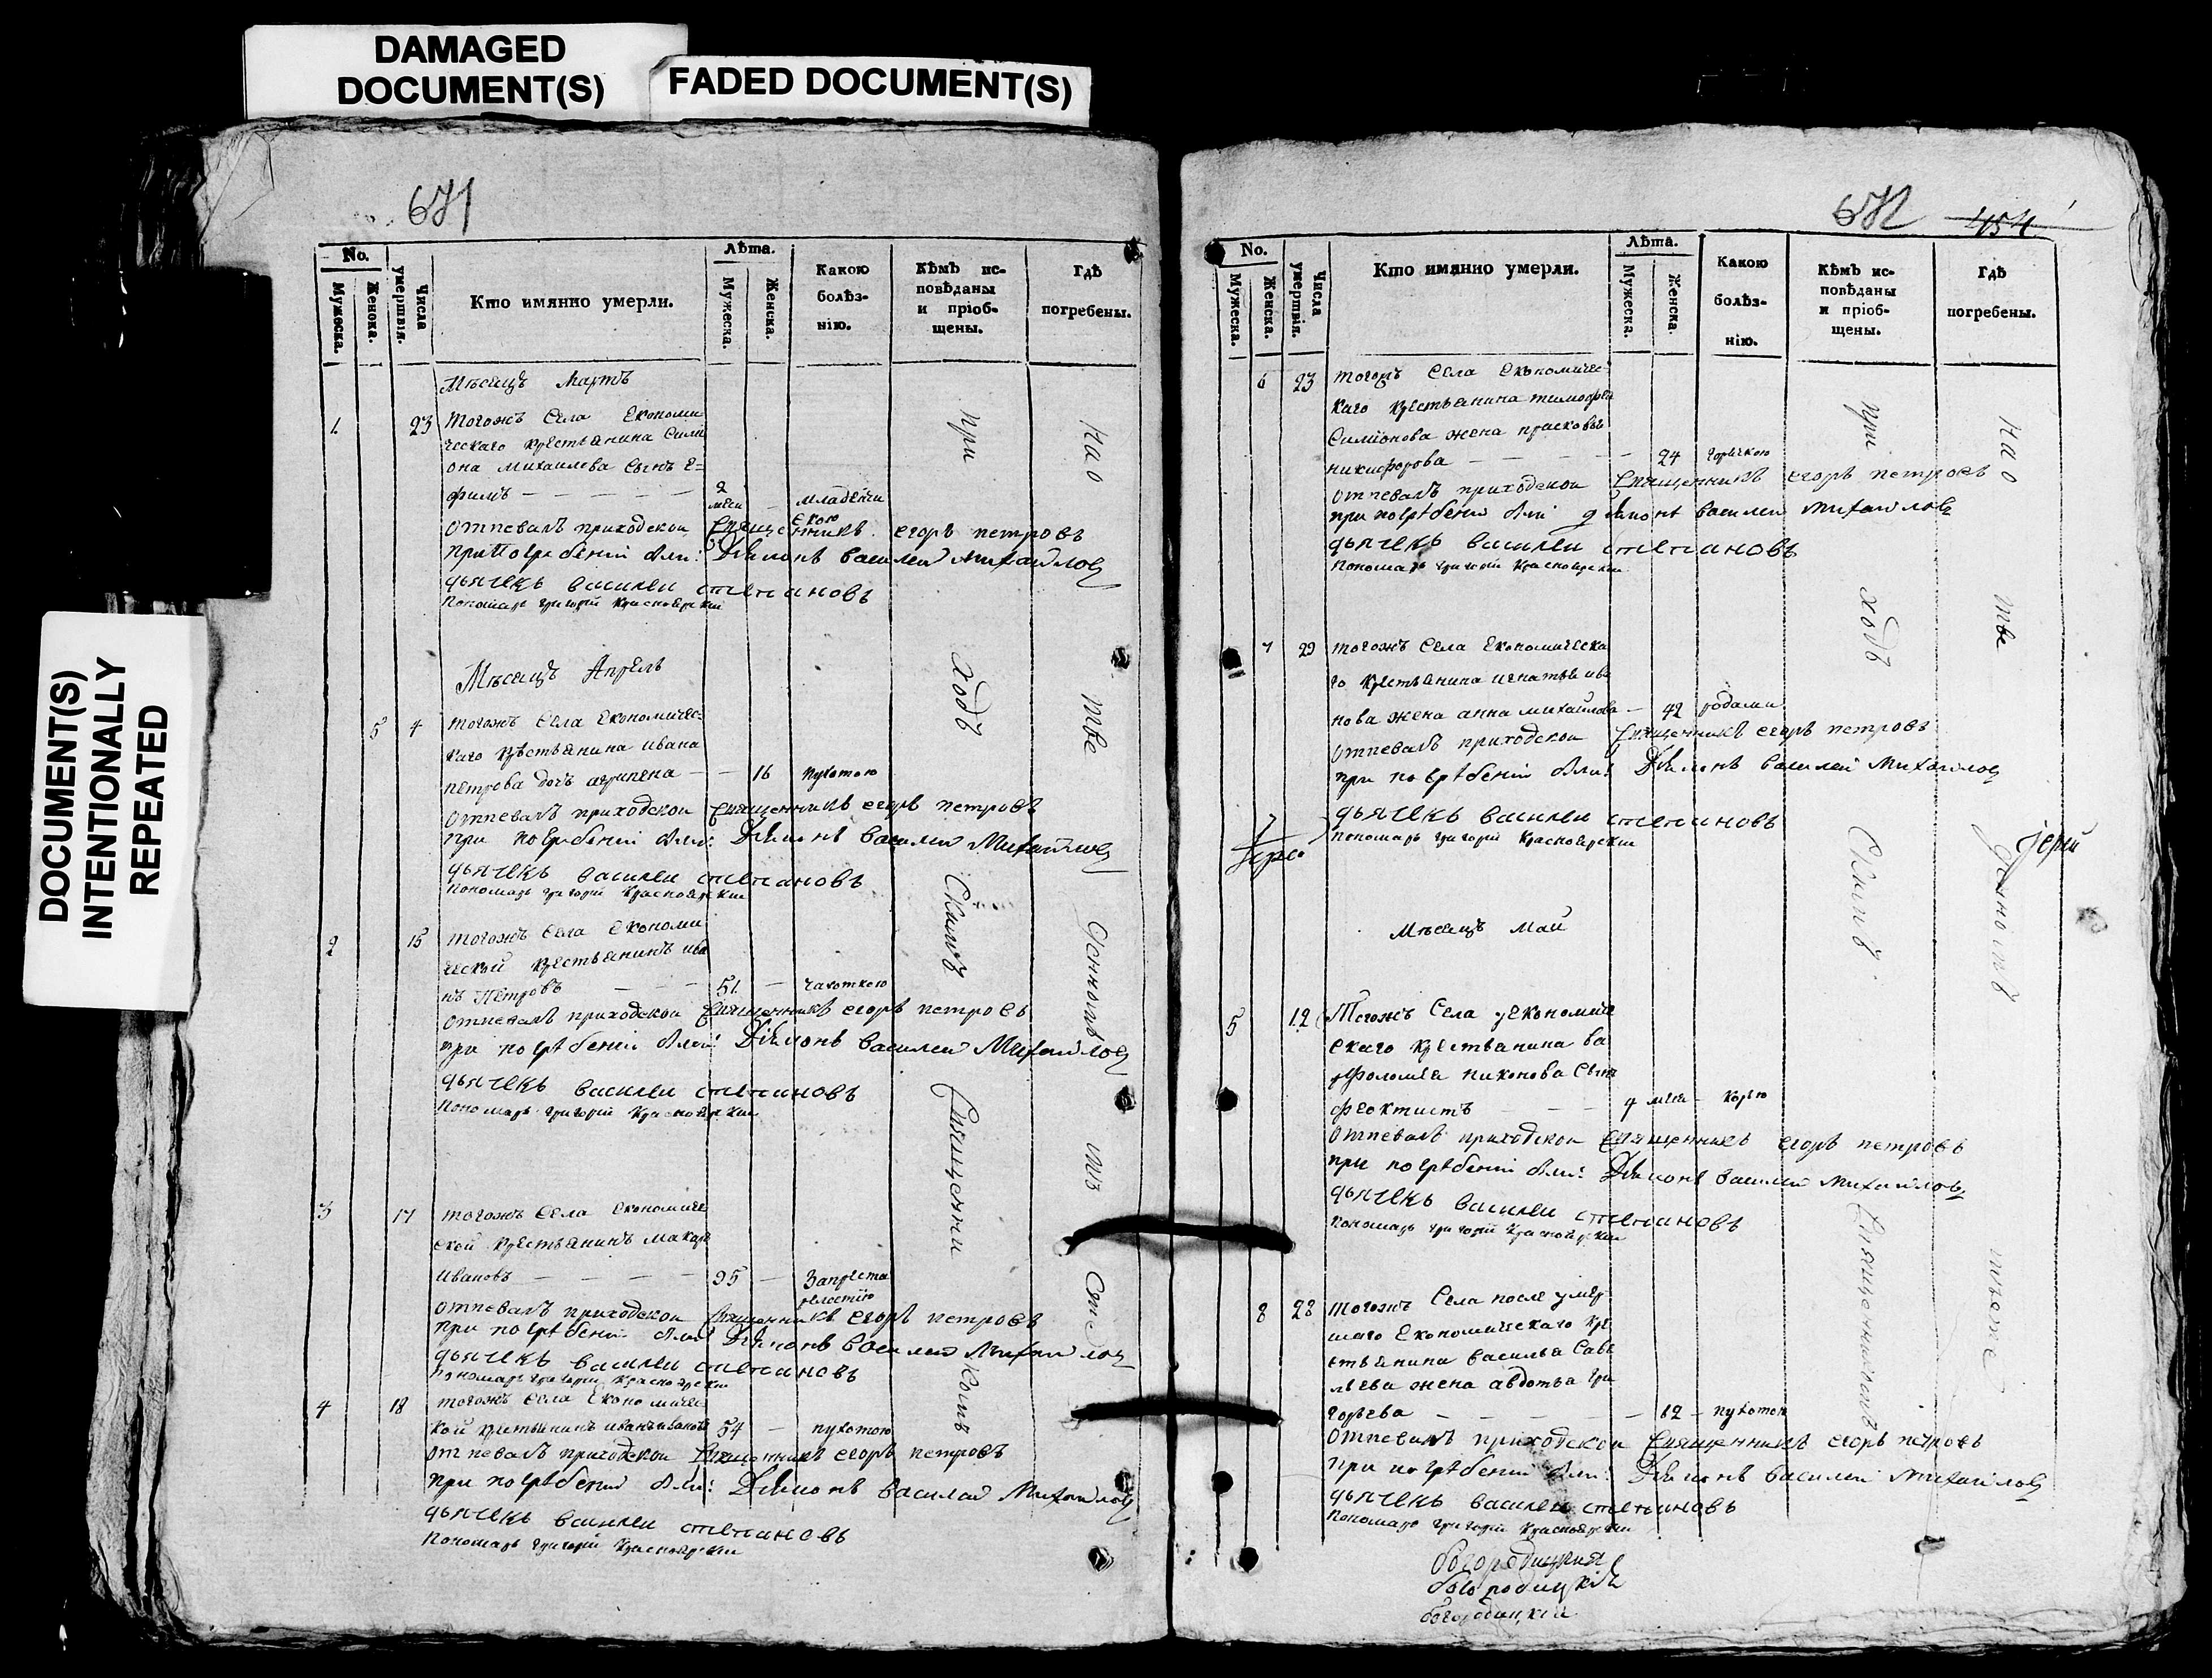 DAMAGED
DOCUMENT(S)
FADED DOCUMENT(S)
DOCUMENT(S)
INTENTIONALLY
REPEATED
671
No.
Мужеска.
Женска.
Числа умертвія.
Кто имянно умерли.
Лѣта.
Мужеска.
Женска.
Какою
болѣз-
нію.
Кѣмъ ис-
повѣданы
и пріоб-
щены.
Гдѣ
погребены.
Мѣсяцъ Мартъ
1. 23 тогожъ Села Економи
ческаго крестьянина Сими
она Михаилова Сынъ е=
фимъ 2 меся младенчи
скою
отпевалъ приходской Священникъ егоръ петровъ
При погребеніи были: Дїяконъ Василей Михайловъ
дьячекъ василеи степановъ
Пономарь григорій Красноярскій
Мѣсяцъ Апрель
5 4 тогожъ Села Економичес-
каго крестьянина ивана
петрова дочь агрипена 16 пухотою
отпевалъ приходской Священникъ егоръ петровъ
При погребеніи были: Дїяконъ Василей Михайловъ
дьячекъ василеи степановъ
Пономарь григорій Красноярскій
2 15 тогожъ Села Економи
ческой крестьянинъ ива
нъ Петровъ 51 чахоткою
отпевалъ приходской Священникъ егоръ петровъ
при погребеніи были: Дїяконъ Василей Михайловъ
дьячекъ василеи степановъ
Пономарь григорій Красноярскій
3 17 тогожъ Села Економиче
ской крестьянинъ макаръ
Ивановъ 95 Запреста
релостїю
отпевалъ приходской Священникъ егоръ петровъ
При погребеніи были: Дїяконъ Василей Михайловъ
дьячекъ василеи степановъ
Пономарь григорій Красноярскій
4 18 тогожъ Села Економичес
кой крестьянинъ иванъ ивановъ 54 пухотою
отпевалъ приходской Священникъ егоръ петровъ
При погребеніи были: Дїяконъ Василей Михайловъ
дьячекъ василеи степановъ
Пономарь григорій Красноярскій
При ходъ Скимъ Священни комъ
На о тве
672 454
No.
Мужеска.
Женска.
Числа умертвія.
Кто имянно умерли.
Лѣта.
Мужеска.
Женска.
Какою
болѣз-
нію.
Кѣмъ ис-
повѣданы
и пріоб-
щены.
Гдѣ
погребены.
6 23 тогожъ Села Економичес-
каго крестьянина тимофея
Симионова жена прасковья
никифорова 24 горячкою
отпевалъ приходской Священникъ егоръ петровъ
при погребеніи были дїяконъ василеи михайловъ
дьячекъ василеи степановъ
Пономарь григорій Красноярскій
7 29 тогожъ Села Економическа
го крестьянина игнатья ива
нова жена анна михайлова 42 родами
отпевалъ приходской Священникъ егоръ петровъ
при погребеніи были: Дїяконъ Василей Михайловъ
дьячекъ василеи степановъ
Пономарь григорій Красноярскій
Мѣсяцъ Май
5 12 Тогожъ Села Економиче
скаго крестьянина ва
рфоломея никонова Сынъ
феоктистъ 4 меся корью
отпевалъ приходской Священникъ егоръ петровъ
при погребеніи были: Дїяконъ Василей Михайловъ
дьячекъ василеи степановъ
Пономарь григорій Красноярскій
8 28 тогожъ Села после умер
шаго Економическаго кре
стьянина василья Саве
льева жена авдотья гри
горьева 62 пухотою
отпевалъ приходской Священникъ егоръ петровъ
При погребеніи были: Дїяконъ Василей Михайловъ
дьячекъ василеи степановъ
Пономарь григорій Красноярскій
При ходъ Скимъ Священникомъ
На о тве
Іерей
богородицкій
богородицкій